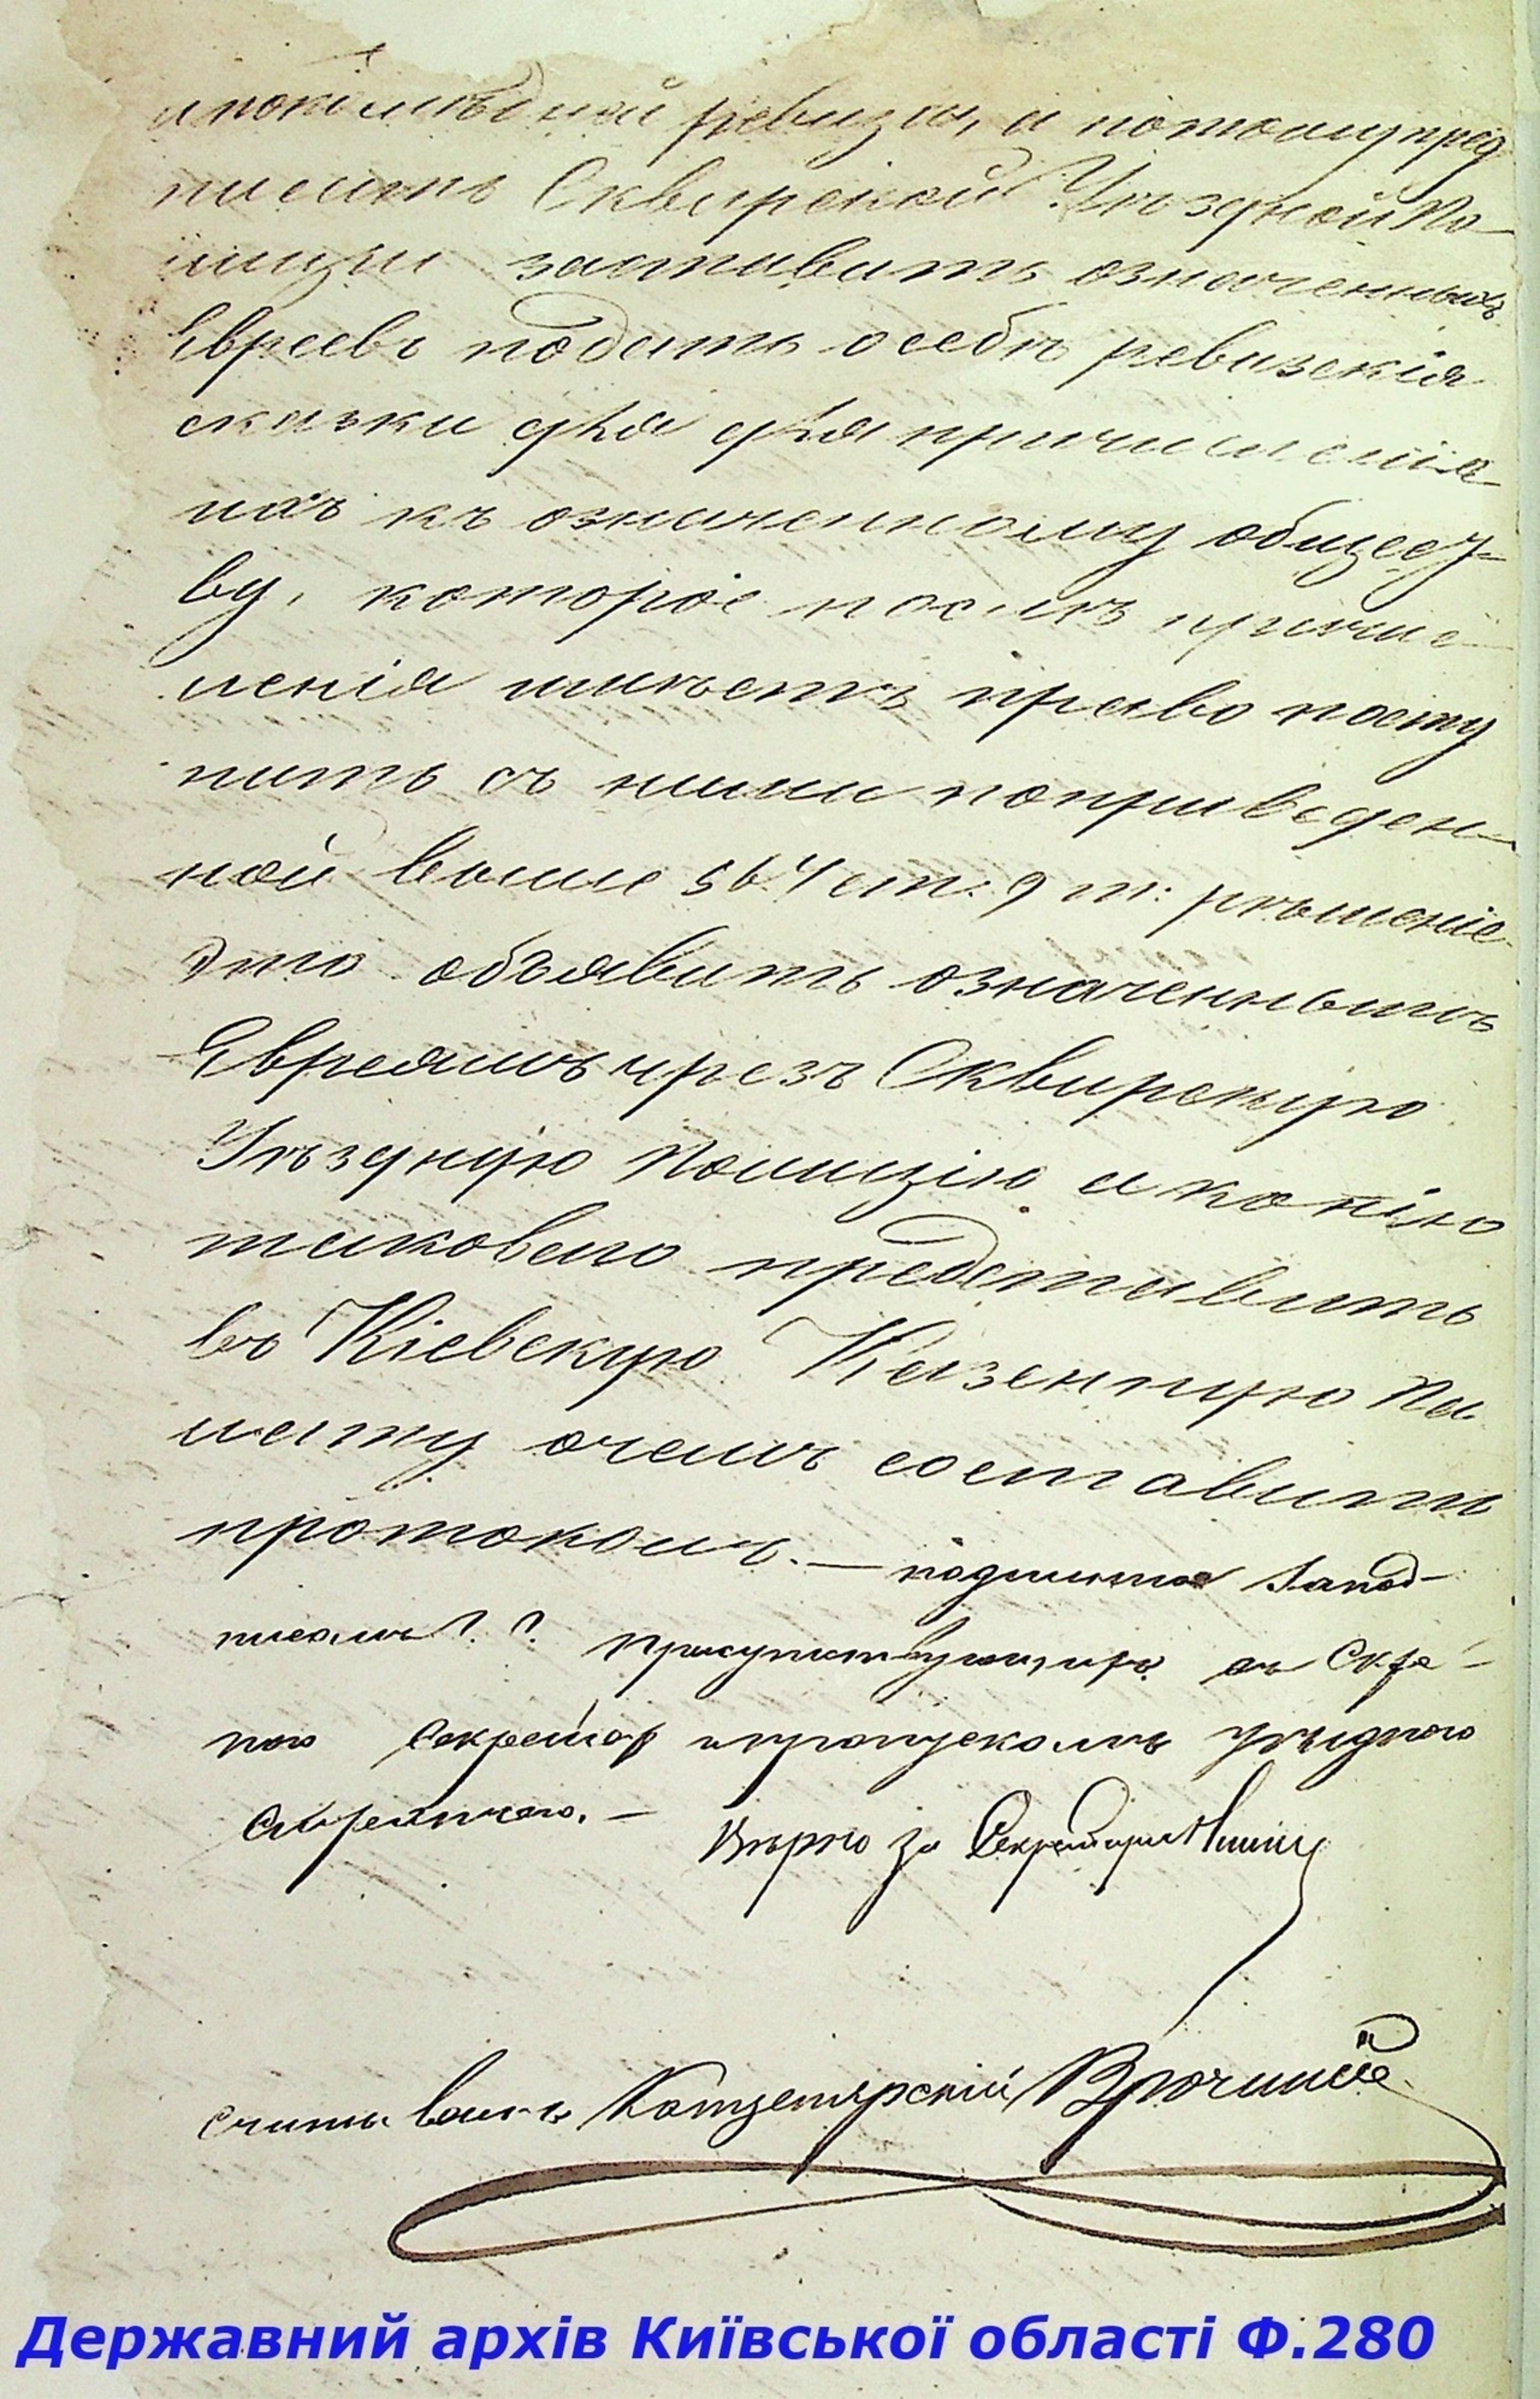 ревизіи, а потому пред
писать Сквирской Уѣздной По-
лиціи заставить означенныхъ
Евреевъ подать особѣ ревизскія
сказки для для причисленія
ихъ къ означенному общест-
ву, которое послѣ причис-
ленія имѣетъ право посту
пить съ ними поприведен-
ной выше 564 ст. 9 т: рѣшеніе
это объявить означеннымъ
Евреямъ чрезъ Сквирскую
Уѣздную Полицію а копію
таковаго представить
въ Кіевскую Казенную Па
лату очемъ составить
протоколъ. — подлинное Запод-
писомъ Г. Г. Присутствующихъ съ Скре-
пою Секретар ипропускомъ Уѣзднаго
Стряпчаго. — Вѣрно за Секретаря
Считывалъ Канцелярскій
Державний архів Київської області Ф.280